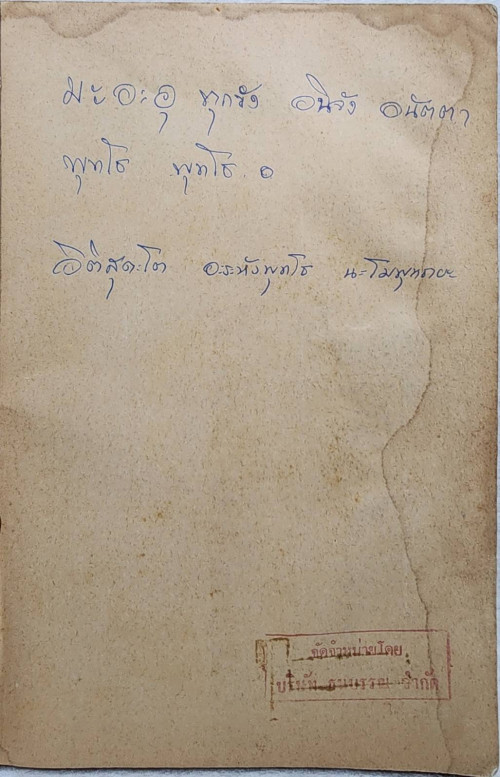 มะ อะ อุ ทุกขัง อนิจัง อนัตตา
พุทโธ พุทโธ ๐
อิติสุคะโต อะระหังพุทโธ นะโมพุทธายะ
จัดจำหน่ายโดย
บริษัท ธนบรรณ จำกัด